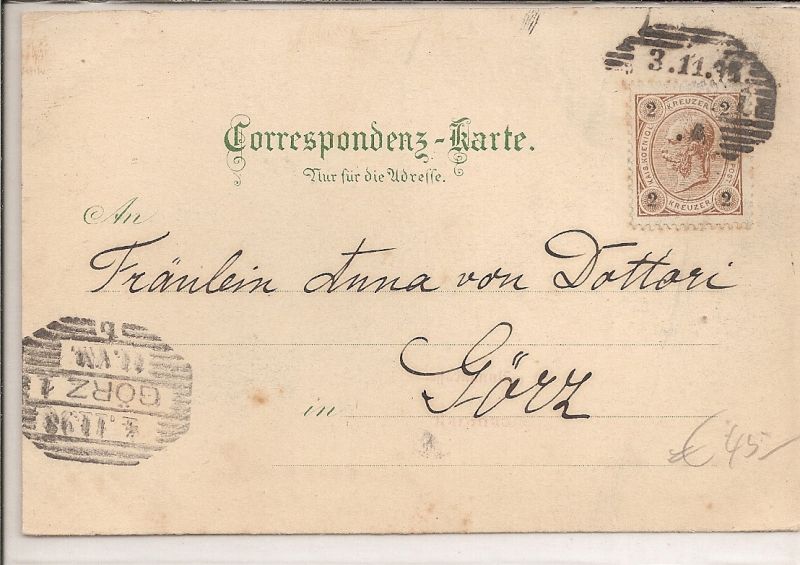 3.11.98
2 KREUZER 2
2 KREUZER 2
Correspondenz-Karte.
Nur für die Adresse.
An
Fräulein Anna von Dottori
in Görz
GÖRZ 1
4.11.98
€ 45-